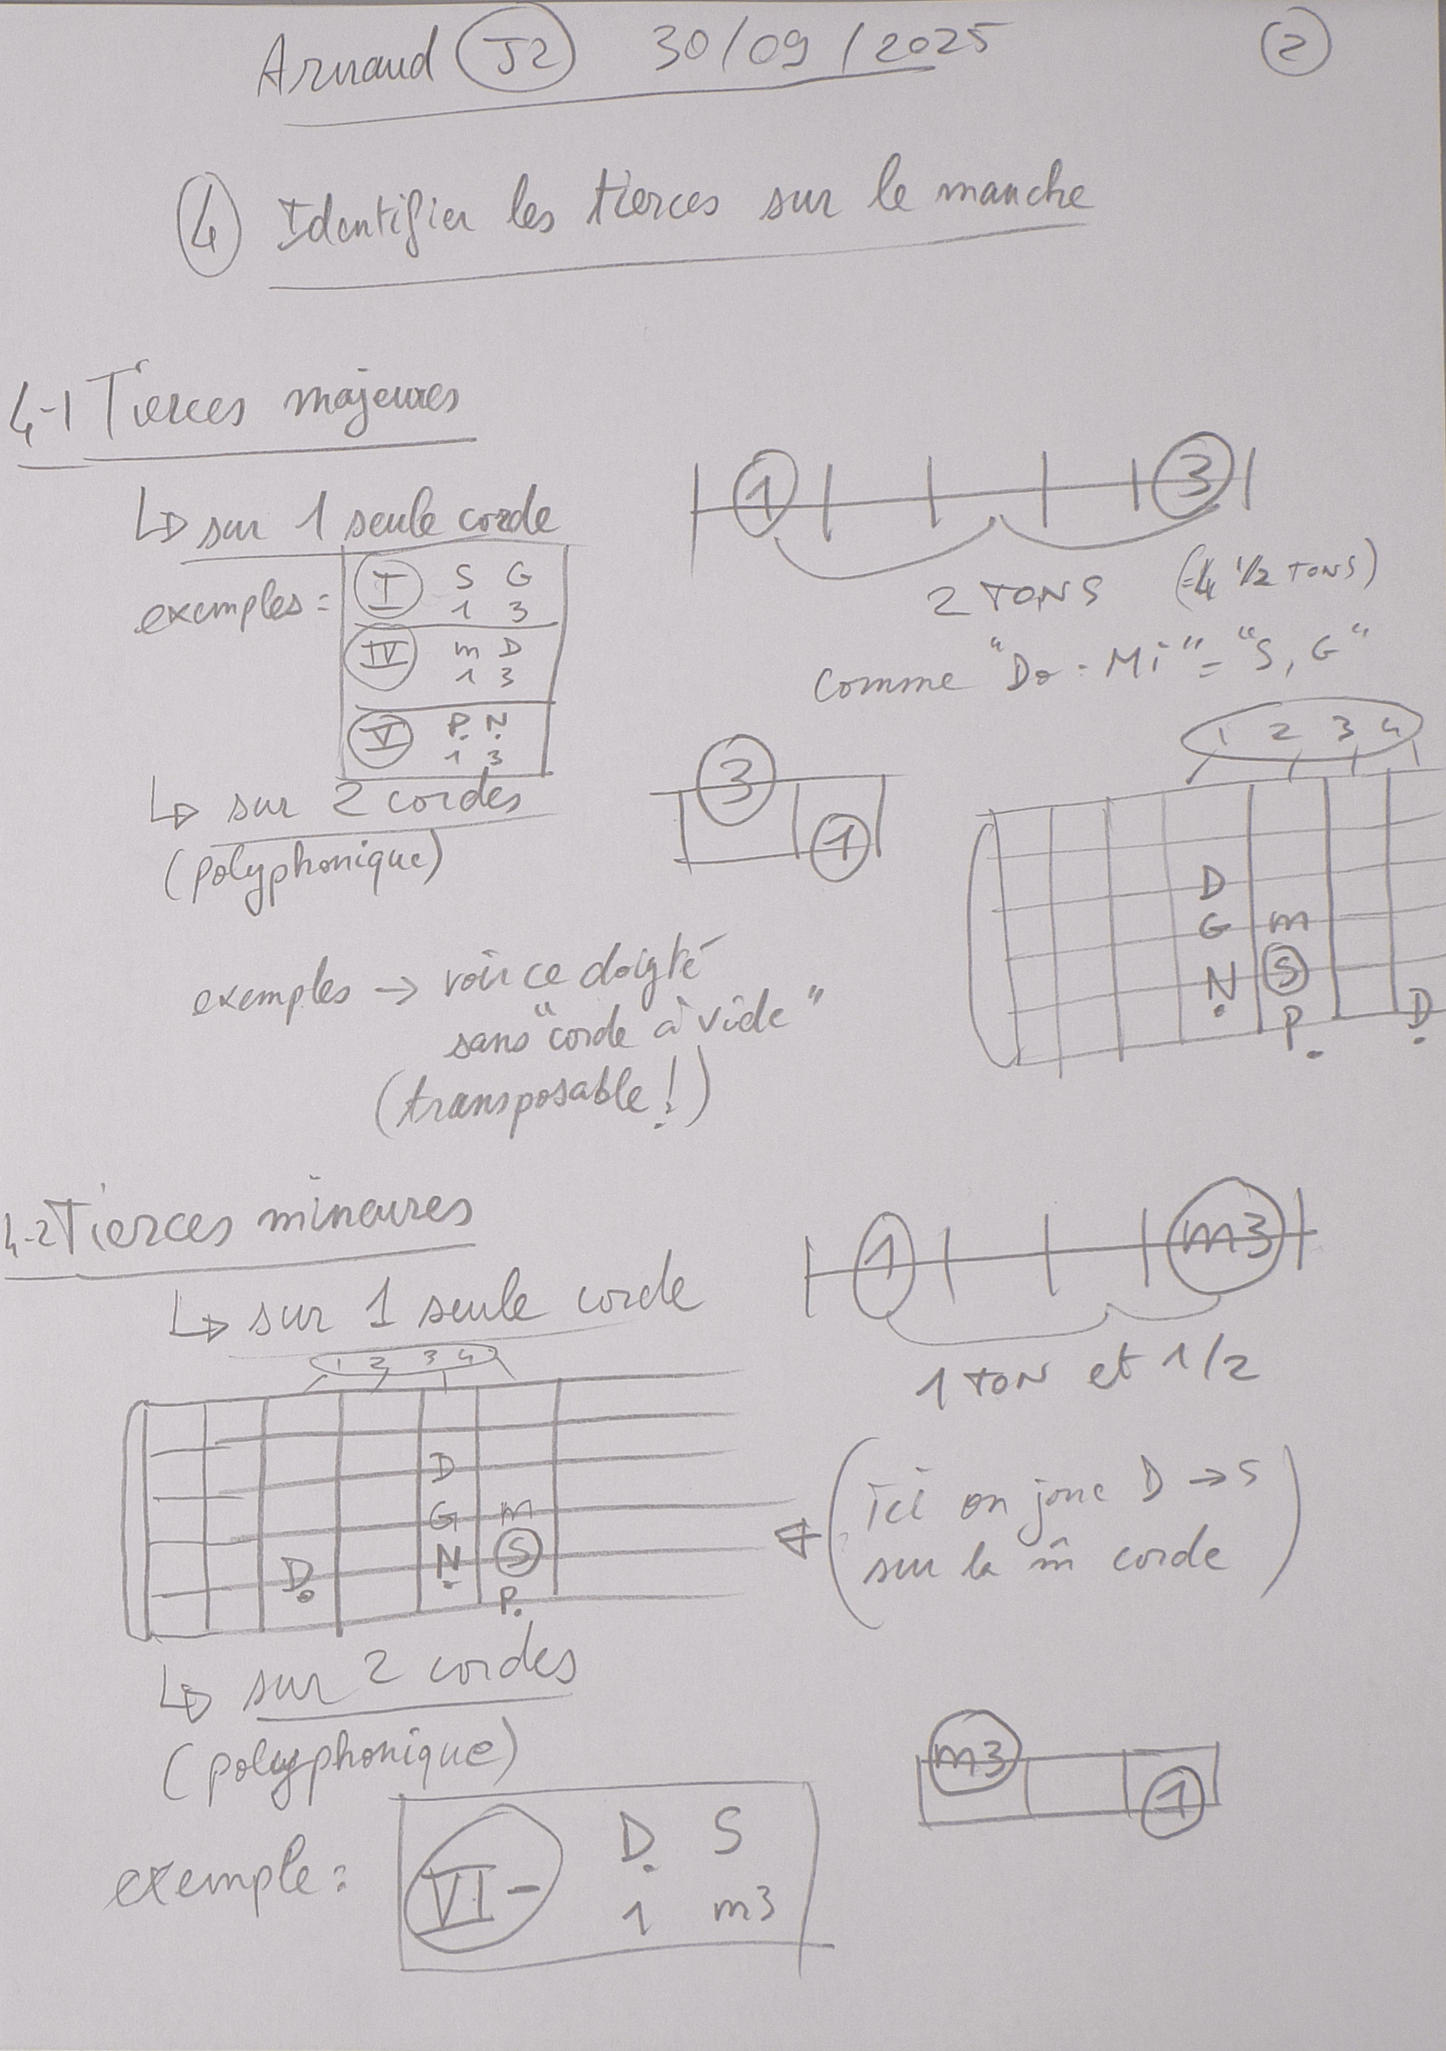 Arnaud J2 30/09/2025 2
4 Identifier les tierces sur le manche
4-1 Tierces majeures
↳ sur 1 seule corde
exemples:
I S G
1 3
IV m D
1 3
V P. N.
1 3
1 3
2 TONS (=4 1/2 TONS)
comme "Do-Mi" = "S, G"
↳ sur 2 cordes
(polyphonique)
3
1
1 2 3 4
D
G m
N. S
P. D.
exemples → voir ce doigté
sans "corde à vide"
(transposable!)
4-2 Tierces mineures
↳ sur 1 seule corde
1 m3
1 TON et 1/2
1 2 3 4
D
G m
D. N. S
P.
(ici on joue D → S
sur la m̂ corde)
↳ sur 2 cordes
(polyphonique)
m3
1
exemple:
VI- D. S
1 m3